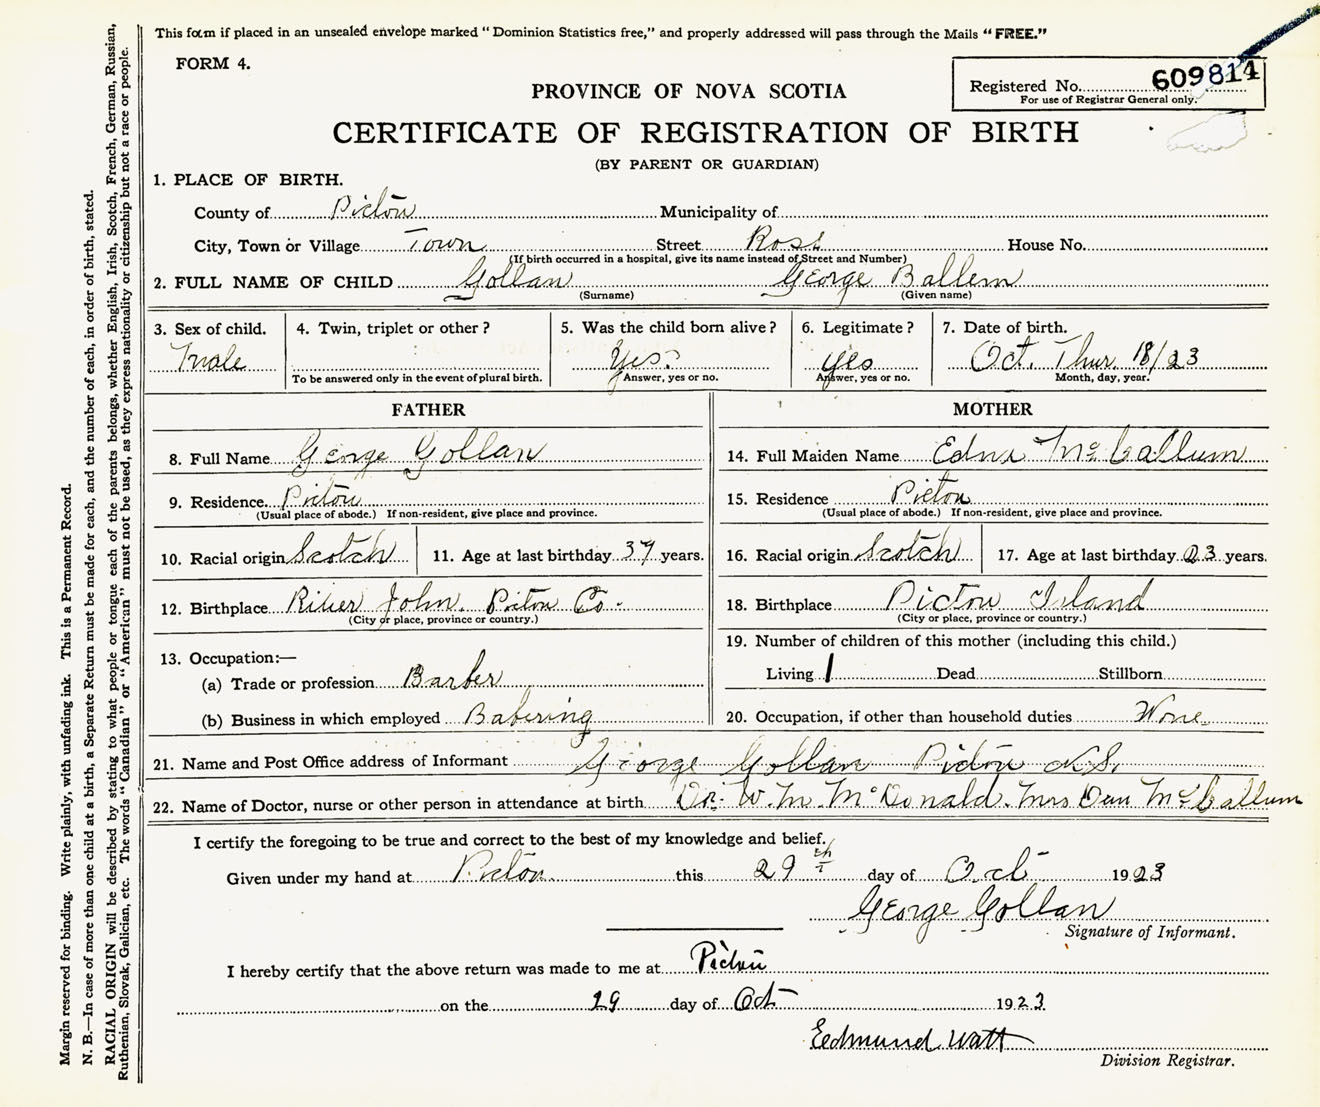 This form if placed in an unsealed envelope marked "Dominion Statistics free," and properly addressed will pass through the Mails "FREE."
FORM 4.
Registered No. 609814
For use of Registrar General only.
PROVINCE OF NOVA SCOTIA
CERTIFICATE OF REGISTRATION OF BIRTH
(BY PARENT OR GUARDIAN)
1. PLACE OF BIRTH.
County of Pictou Municipality of
City, Town or Village Town Street Ross House No.
(If birth occurred in a hospital, give its name instead of Street and Number)
2. FULL NAME OF CHILD Gollan George Ballem
(Surname) (Given name)
3. Sex of child. 4. Twin, triplet or other? 5. Was the child born alive? 6. Legitimate? 7. Date of birth.
Male Yes. Yes Oct. Thur. 18/23
To be answered only in the event of plural birth. Answer, yes or no. Answer, yes or no. Month, day, year.
FATHER MOTHER
8. Full Name George Gollan 14. Full Maiden Name Edna McCallum
9. Residence. Pictou 15. Residence Pictou
(Usual place of abode.) If non-resident, give place and province. (Usual place of abode.) If non-resident, give place and province.
10. Racial origin Scotch 11. Age at last birthday 37 years. 16. Racial origin Scotch 17. Age at last birthday 23 years.
12. Birthplace River John. Pictou Co. 18. Birthplace Pictou Island
(City or place, province or country.) (City or place, province or country.)
19. Number of children of this mother (including this child.)
13. Occupation:—
Living 1 Dead Stillborn
(a) Trade or profession Barber
(b) Business in which employed Babering 20. Occupation, if other than household duties None.
21. Name and Post Office address of Informant George Gollan Pictou N.S.
22. Name of Doctor, nurse or other person in attendance at birth Dr. W. M. McDonald. Mrs Dan McCallum
I certify the foregoing to be true and correct to the best of my knowledge and belief.
Given under my hand at Pictou this 29th day of Oct 1923
George Gollan
Signature of Informant.
I hereby certify that the above return was made to me at Pictou
on the 29 day of Oct 1923
Edmund Watt
Division Registrar.
Margin reserved for binding. Write plainly, with unfading ink. This is a Permanent Record.
N. B.—In case of more than one child at a birth, a Separate Return must be made for each, and the number of each, in order of birth, stated.
RACIAL ORIGIN will be described by stating to what people or tongue each of the parents belongs, whether English, Irish, Scotch, French, German, Russian,
Ruthenian, Slovak, Galician, etc. The words "Canadian" or "American" must not be used, as they express nationality or citizenship but not a race or people.